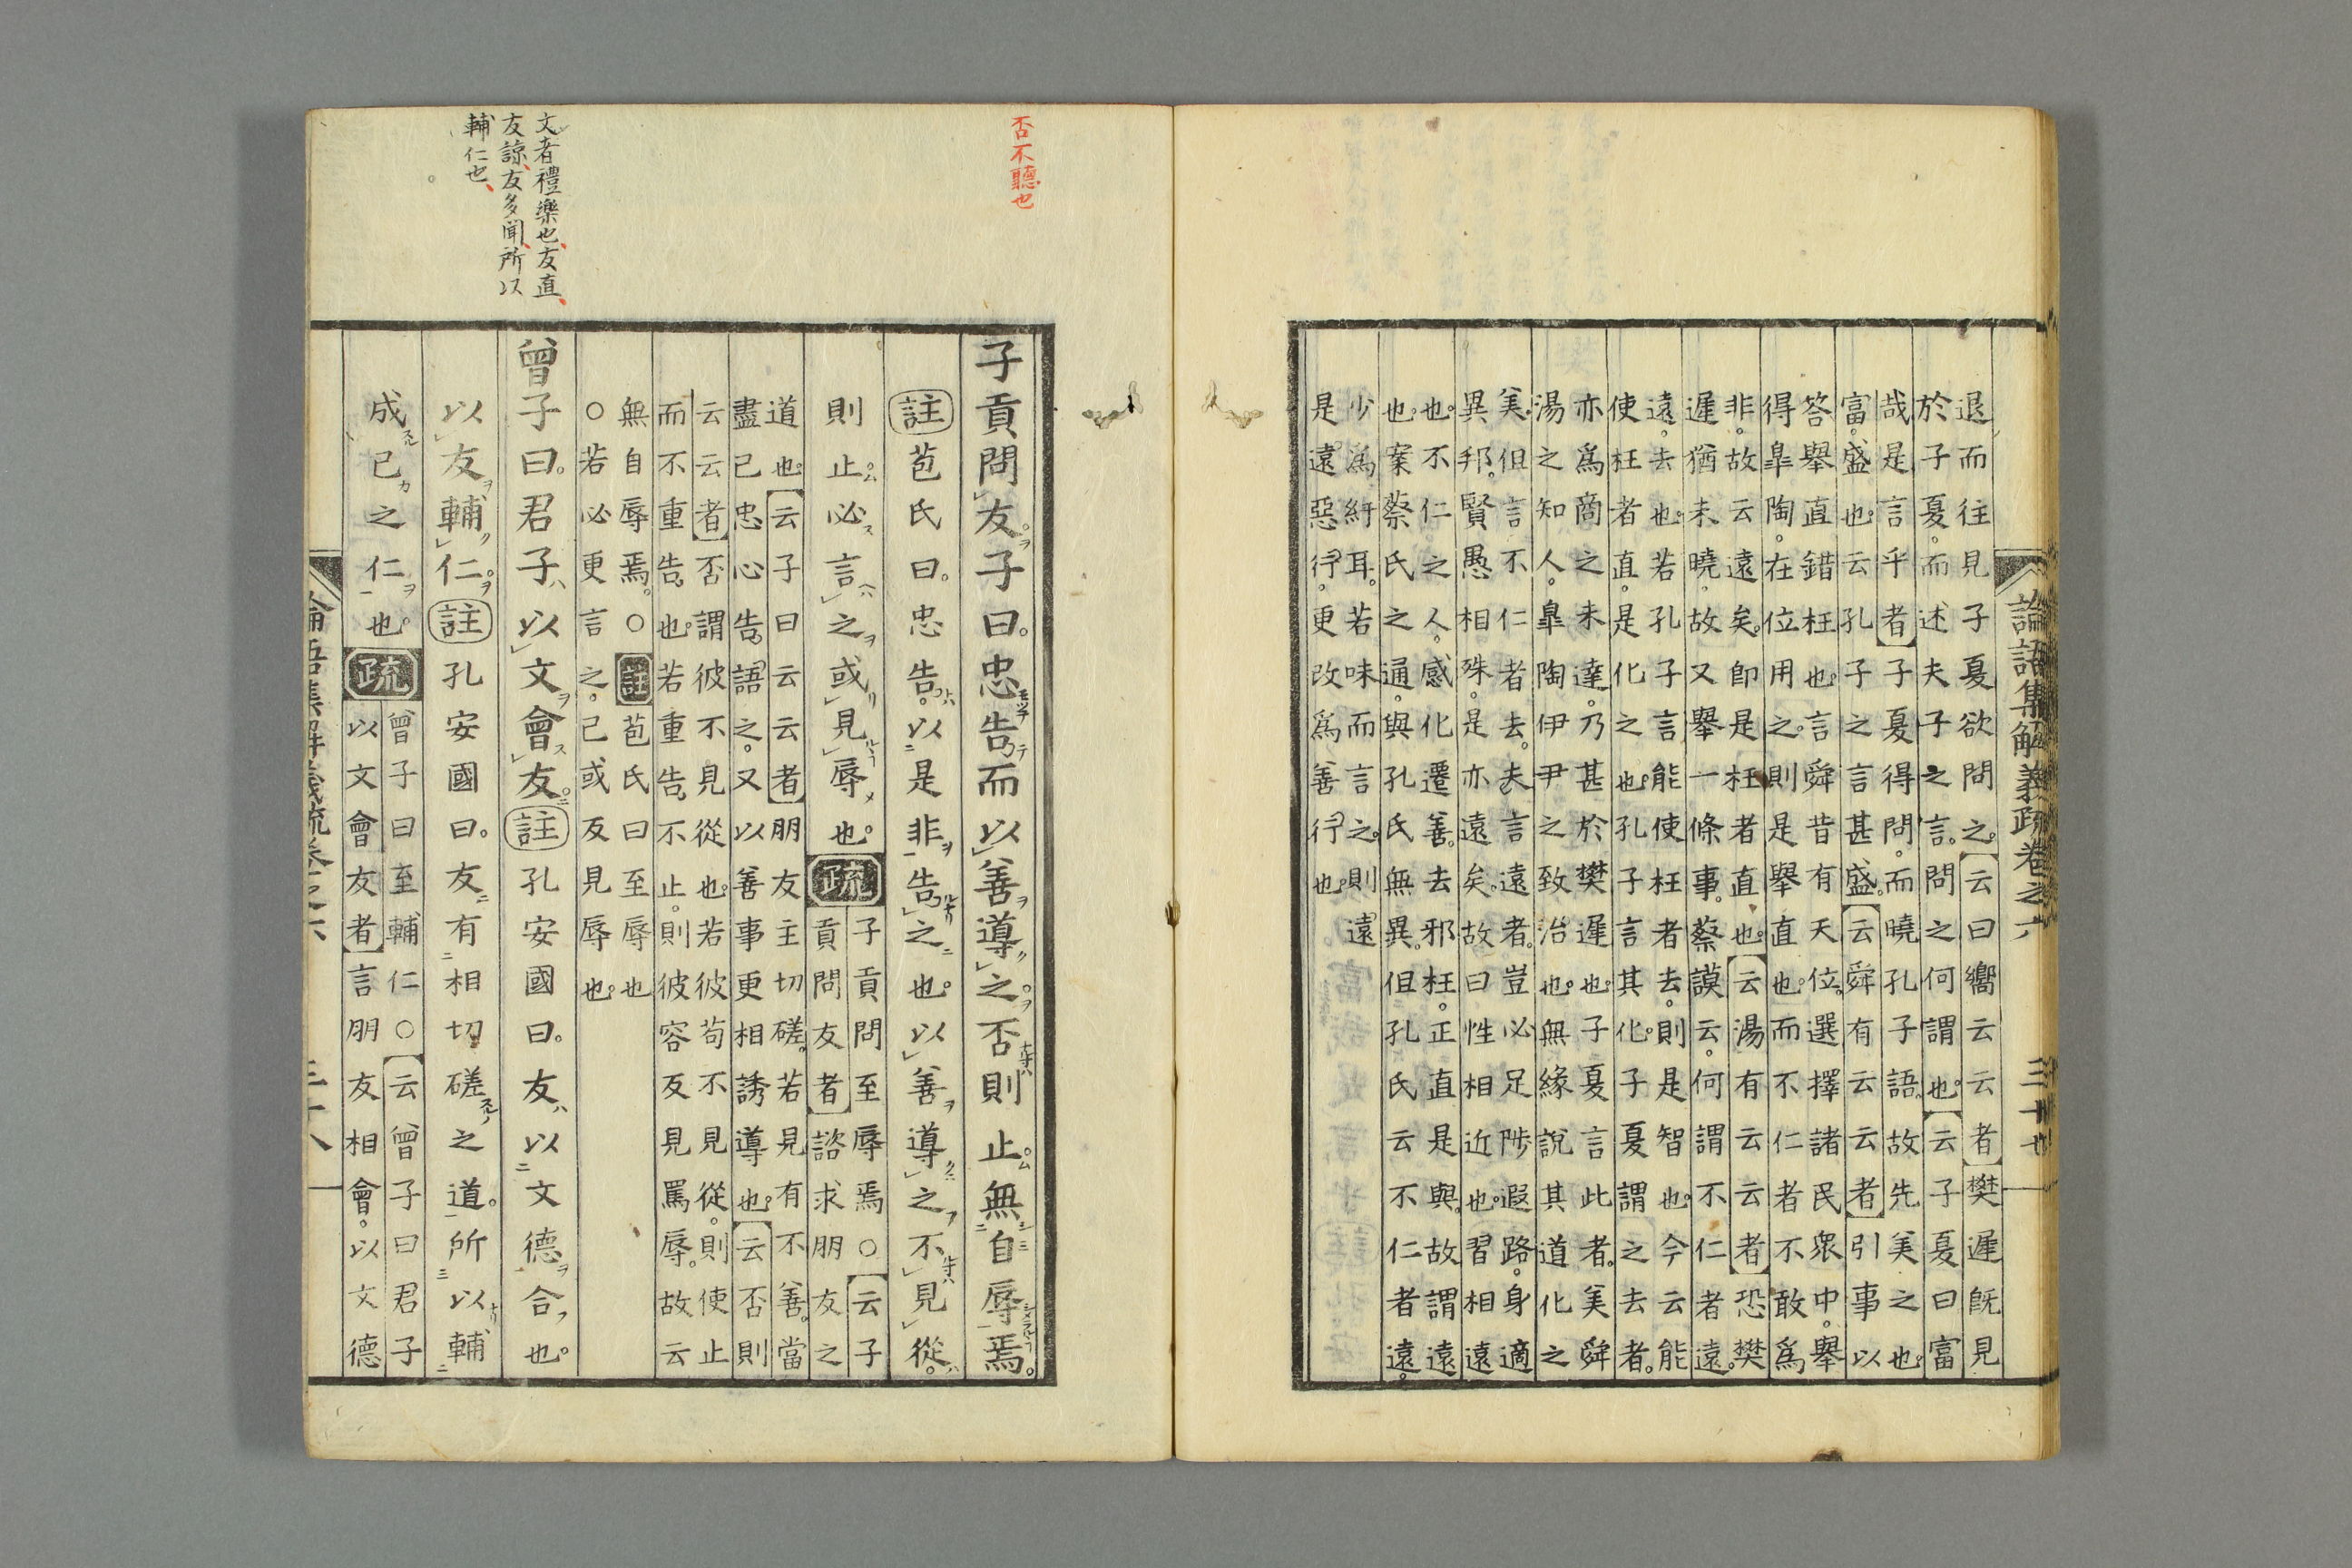 論語集解義疏卷之六　三十七
退而往見子夏欲問之。【云曰嚮云云者】樊遲旣見
於子夏。而述夫子之言。問之何謂也。【云子夏曰富
哉是言乎者】子夏得問。而曉孔子語。故先美之也。
富。盛也。云孔子之言甚盛。【云舜有云云者】引事以
答舉直錯枉也。言舜昔有天位。選擇諸民衆中。舉
得皐陶。在位用之。則是舉直也。而不仁者不敢爲
非。故云遠矣。卽是枉者直也。【云湯有云云者】恐樊
遲猶未曉。故又舉一條事。蔡謨云。何謂不仁者遠。
遠。去也。若孔子言能使枉者去。則是智也。今云能
使枉者直。是化之也。孔子言其化。子夏謂之去者。
亦爲商之未達。乃甚於樊遲也。子夏言此者。美舜
湯之知人。皐陶伊尹之致治也。無緣說其道化之
美。但言不仁者去。夫言遠者。豈必足陟遐路。身適
異邦。賢愚相殊。是亦遠矣。故曰性相近也。習相遠
也。不仁之人。感化遷善。去邪枉。正直是與。故謂遠
也。案蔡氏之通。與孔氏無異。但孔氏云不仁者遠。
少爲紆耳。若味而言之。則遠
是遠惡行。更改爲善行也。
否不聽也
子貢問友。子曰。忠告而以善導之。否則止。無自辱焉。
註苞氏曰。忠告。以是非告之也。以善導之。不見從。
則止。必言之。或見辱也。疏子貢問至辱焉○【云子
貢問友者】諮求朋友之
道也。【云子曰云云者】朋友主切磋。若見有不善。當
盡己忠心告語之。又以善事更相誘導也。【云否則
云云者】否謂彼不見從也。若彼苟不見從。則使止
而不重告也。若重告。不止。則彼容反見罵辱。故云
無自辱焉。○註苞氏曰至辱也
○若必更言之。己或反見辱也。
曾子曰。君子以文會友。註孔安國曰。友以文德合也。
以友輔仁。註孔安國曰。友有相切磋之道。所以輔
成己之仁也。疏曾子曰至輔仁○【云曾子曰君子
以文會友者】言朋友相會。以文德
文者禮樂也、友直、
友諒、友多聞、所以
輔仁也、
論語集解義疏卷之六　三十八